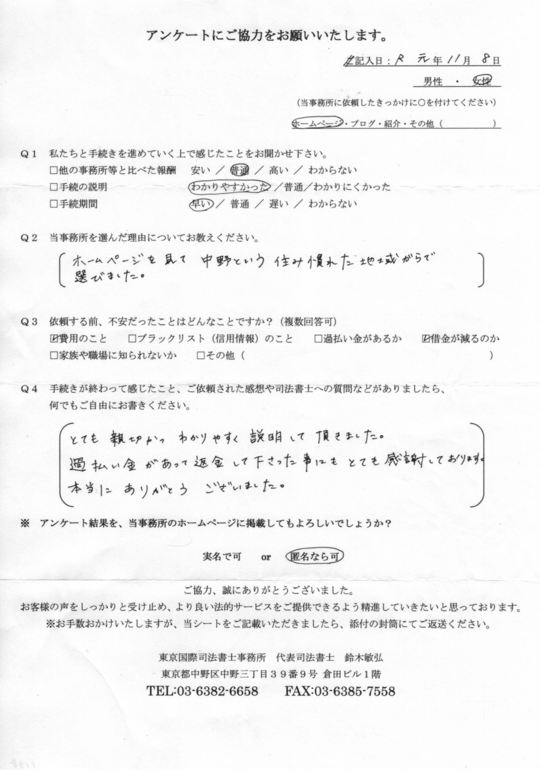 アンケートにご協力をお願いいたします。
記入日：R 元年 11月 8日
男性 ・ 女性
（当事務所に依頼したきっかけに○を付けてください）
ホームページ・ブログ・紹介・その他（ ）
Q１ 私たちと手続きを進めていく上で感じたことをお聞かせ下さい。
□他の事務所等と比べた報酬 安い ／ 普通 ／ 高い ／ わからない
□手続の説明 わかりやすかった ／普通／わかりにくかった
□手続期間 早い ／ 普通 ／ 遅い ／ わからない
Q２ 当事務所を選んだ理由についてお教えください。
ホームページを見て 中野という 住み慣れた地域がらで
選びました。
Q３ 依頼する前、不安だったことはどんなことですか？（複数回答可）
☑費用のこと □ブラックリスト（信用情報）のこと □過払い金があるか ☑借金が減るのか
□家族や職場に知られないか □その他（ ）
Q４ 手続きが終わって感じたこと、ご依頼された感想や司法書士への質問などがありましたら、
何でもご自由にお書きください。
とても 親切かつ わかりやすく 説明して 頂きました。
過払い金があって 返金して下さった事にも とても感謝しております。
本当に ありがとう ございました。
※ アンケート結果を、当事務所のホームページに掲載してもよろしいでしょうか？
実名で可 or 匿名なら可
ご協力、誠にありがとうございました。
お客様の声をしっかりと受け止め、より良い法的サービスをご提供できるよう精進していきたいと思っております。
※お手数おかけいたしますが、当シートをご記載いただきましたら、添付の封筒にてご返送ください。
東京国際司法書士事務所 代表司法書士 鈴木敏弘
東京都中野区中野三丁目３９番９号 倉田ビル１階
TEL:03-6382-6658 FAX:03-6385-7558